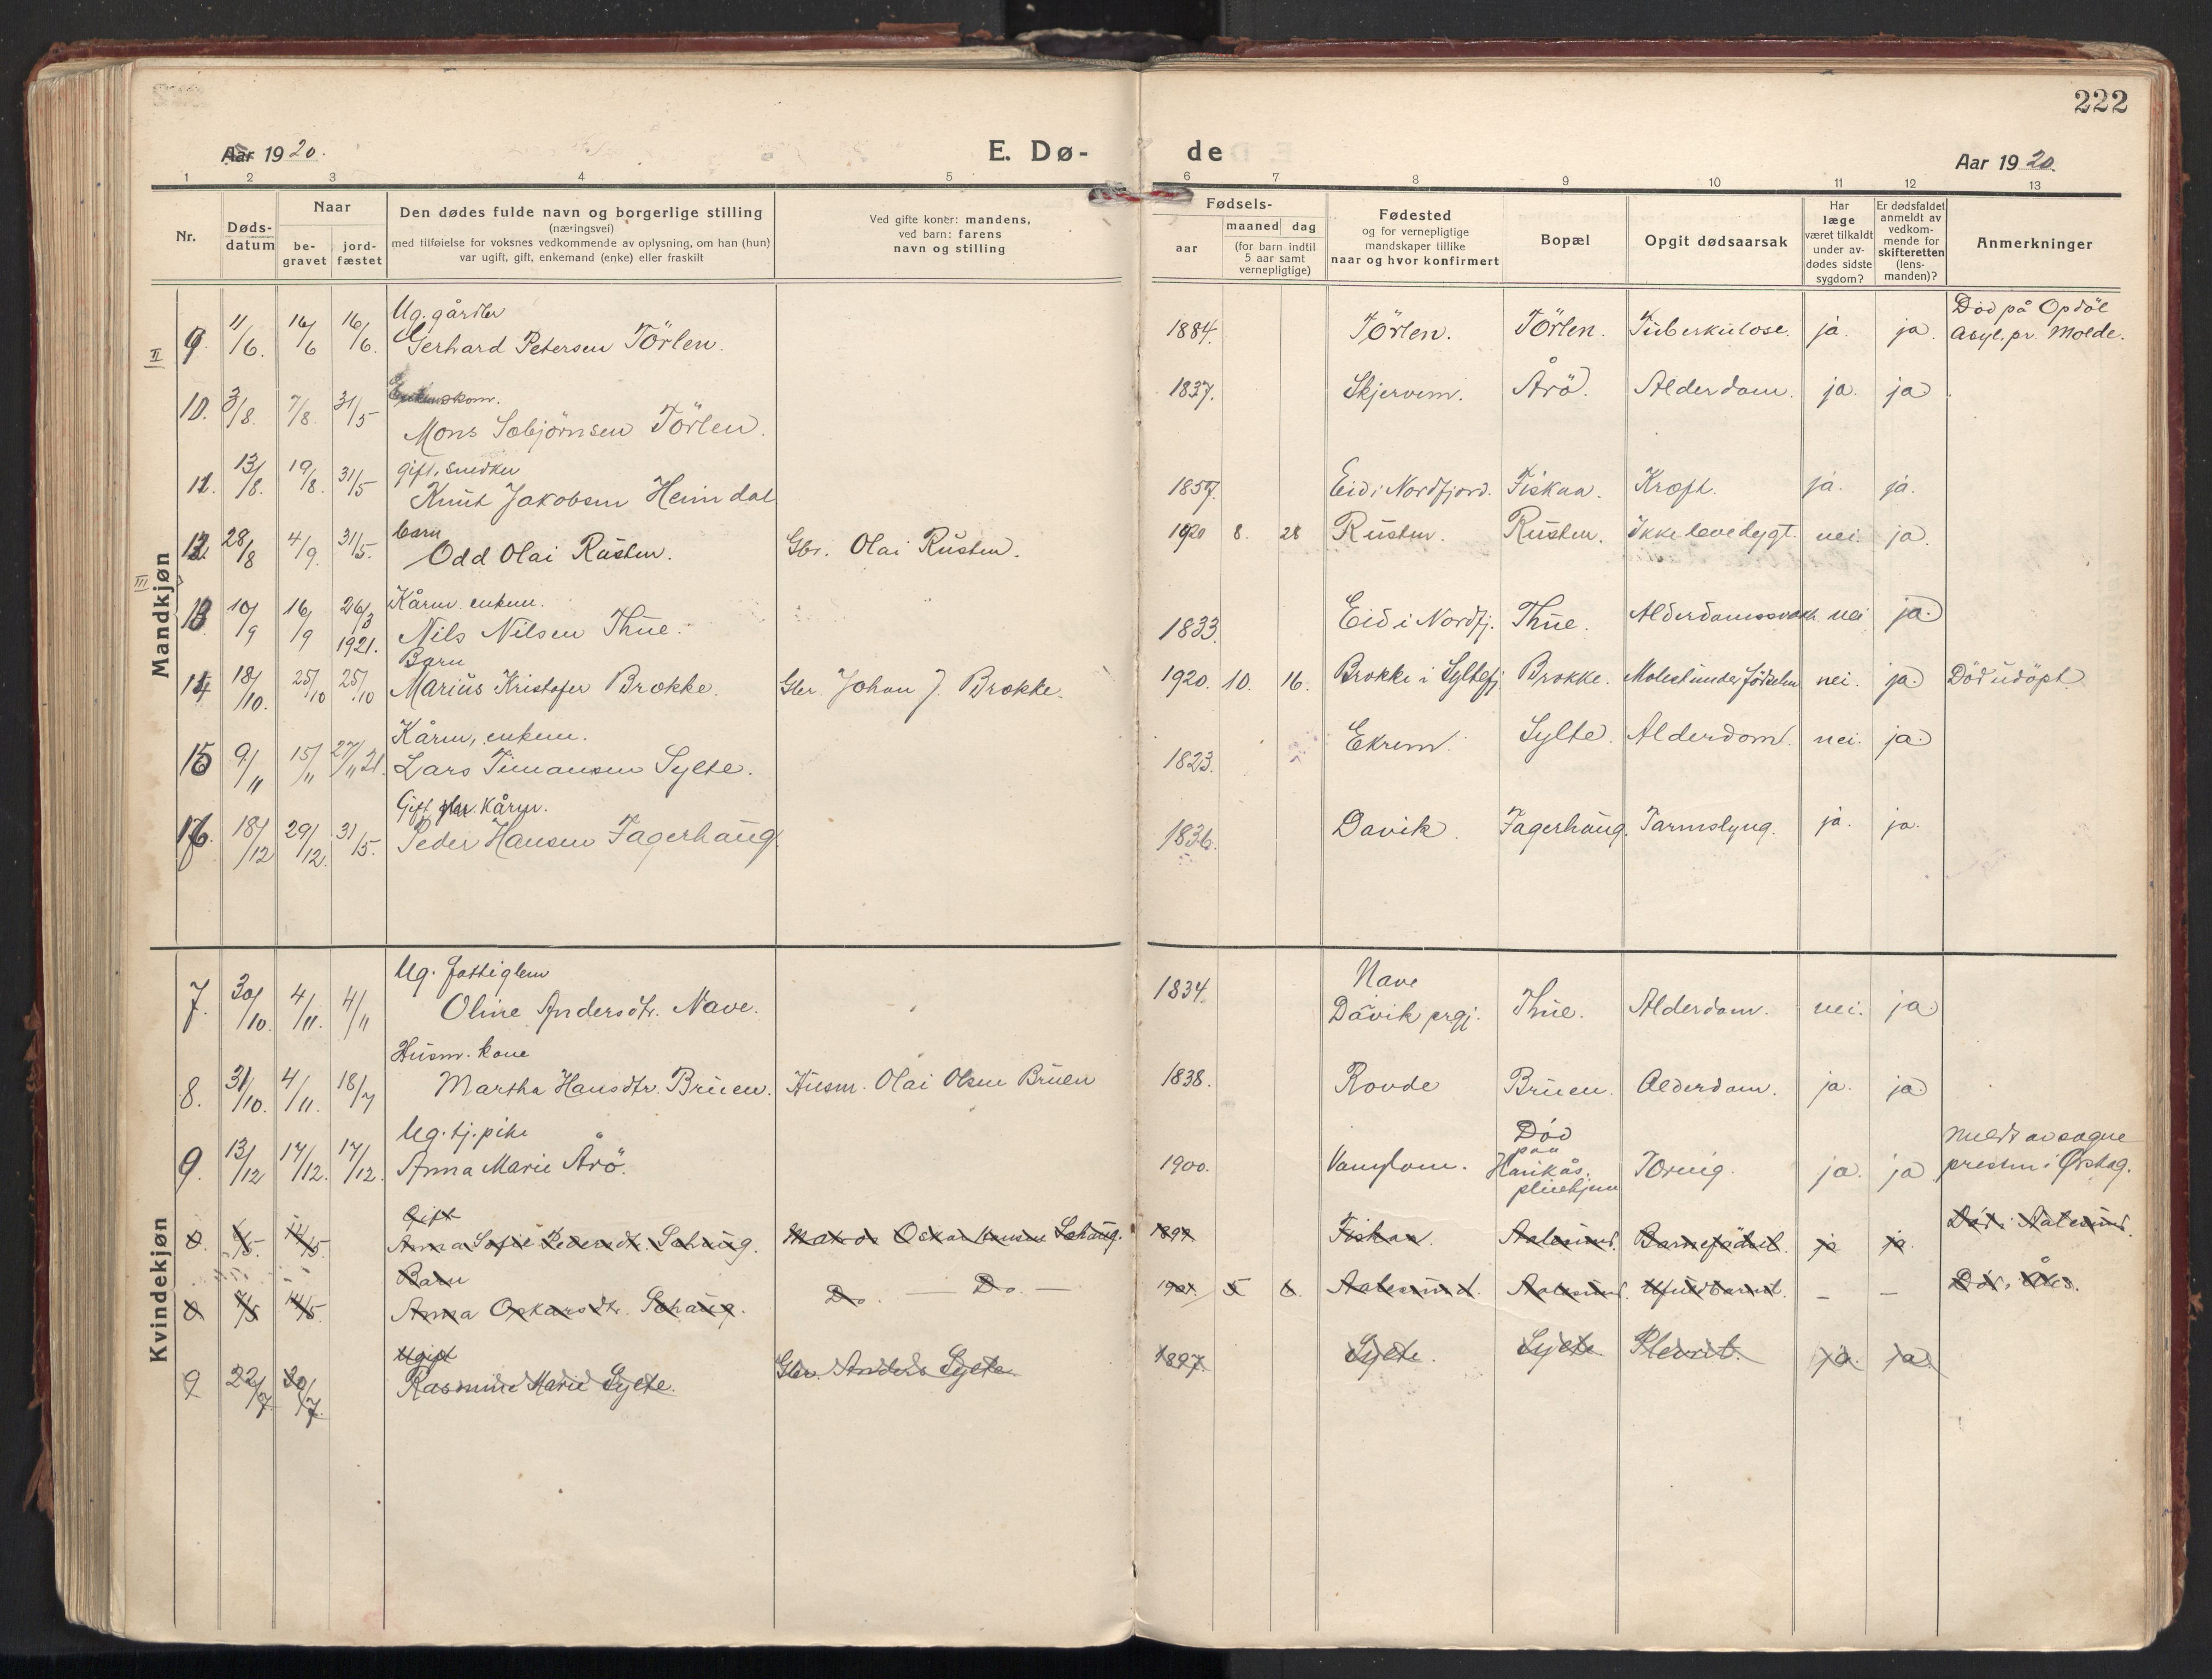 222
Aar 1920.
E. Dø-
de
Aar 1920.
1 2 3 4 5 6 7 8 9 10 11 12 13
Nr.
Døds-
datum
Naar
be-
gravet
jord-
fæstet
Den dødes fulde navn og borgerlige stilling
(næringsvei)
med tilføielse for voksnes vedkommende av oplysning, om han (hun)
var ugift, gift, enkemand (enke) eller fraskilt
Ved gifte koner: mandens,
ved barn: farens
navn og stilling
Fødsels-
aar
maaned dag
(for barn indtil
5 aar samt
vernepligtige)
Fødested
og for vernepligtige
mandskaper tillike
naar og hvor konfirmert
Bopæl
Opgit dødsaarsak
Har
læge
været tilkaldt
under av-
dødes sidste
sygdom?
Er dødsfaldet
anmeldt av
vedkom-
mende for
skifteretten
(lens-
manden)?
Anmerkninger
Mandkjøn
II
III
Ug. gårdbr
9. 11/6. 16/6 16/6. Gerhard Petersen Törlen. 1884. Törlen. Törlen. Tuberkulose. ja. ja. Död på Opdöl
Asyl. pr. Molde.
10. 3/8. 7/8. 31/5 Mons Sæbjörnsen Törlen. 1837. Skjervem. Årö. Alderdom. ja. ja.
gift, snedker
11. 13/8. 19/8. 31/5 Knut Jakobsen Heimdal 1857. Eid i Nordfjord. Fiskaa. Kræft. ja. ja.
barn
12. 28/8 4/9. 31/5. Odd Olai Rusten. Gbr. Olai Rusten. 1920 8. 28 Rusten. Rusten. Ikke levedygt. nei. ja.
Kårm. enkem.
13 10/9 16/9 26/3 1921. Nils Nilsen Thue. 1833. Eid i Nordfj. Thue. Alderdomssvakh. nei ja.
Barn
14 18/10. 25/10 25/10 Marius Kristofer Brokke. Gbr. Johan J. Brokke. 1920. 10. 16. Brokke i Syltefj. Brokke. Molest under födselen nei. ja. Död udöpt.
Kårm, enkem.
15 9/11 15/11 27/11 21. Lars Timansen Sylte. 1823. Ekrem. Sylte. Alderdom. nei. ja.
Gift, gbr. Kårm.
16. 18/12 29/12. 31/5. Peder Hansen Fagerhaug. 1836. Davik. Fagerhaug. Tarmslyng. ja. ja.
Kvindekjøn
Ug. fattiglem
7. 30/10. 4/11. 4/11 Oline Andersdtr. Nave. 1834. Nave
Davik prgj. Thue. Alderdom. nei. ja.
Husm. kone
8. 31/10. 4/11. 18/7 Martha Hansdtr. Bruen. Husm. Olai Olsen Bruen 1838. Rovde Bruen. Alderdom. ja. ja.
Ug. tj. pike
9. 13/12 17/12. 17/12. Anna Marie Årö. 1900. Vanylven. Död
paa ja. ja meldt av sogne
presten i Ørskog.
Gift
8. 6/5. 14/5. Anna Sofie Pedersdtr. Sohaug. 1897 Fiskaa. Aalesund. Barnefödsel. ja ja. Död i Aalesund.
Barn
8 14/5. Anna Oskarsdtr. Sohaug. Do. — Do. — 5 6. Aalesund. Aalesund. Ufuldbaaret. — —
Ugift
9 22/7 30/7. Rasmine Marie Sylte. Gbr. Anders Sylte 1897. Sylte. Sylte Plevrit. ja. ja.